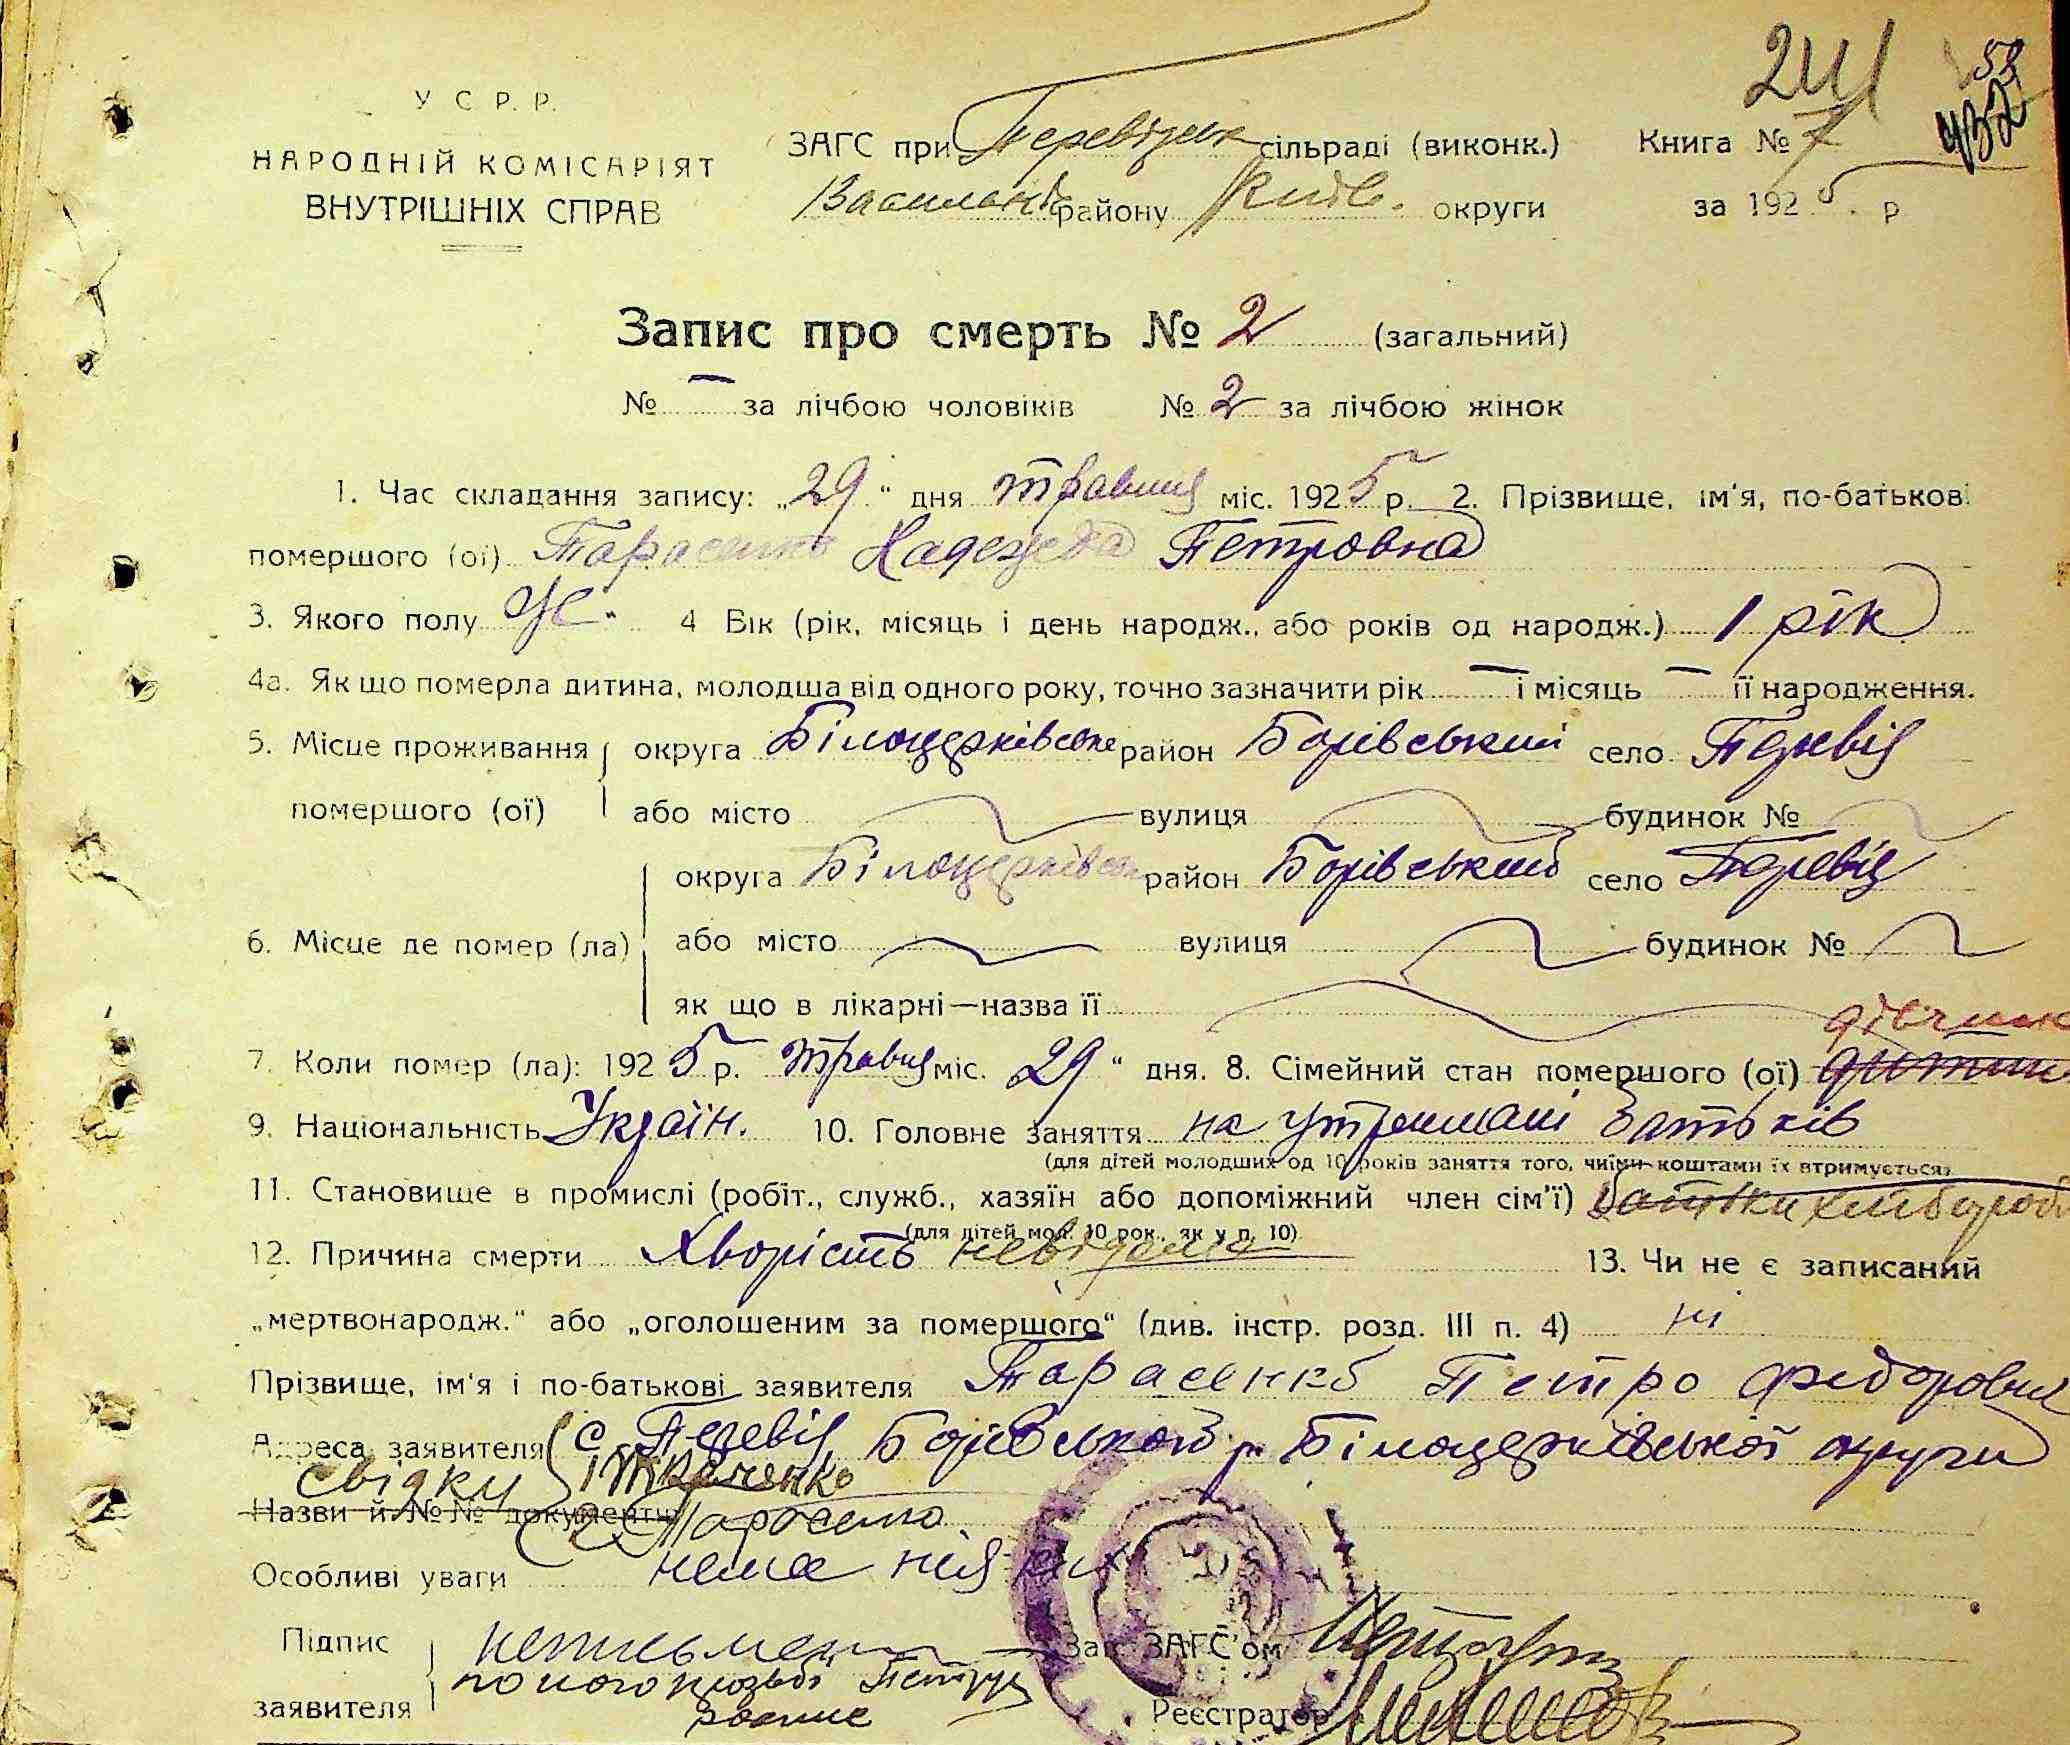 241 58
432
У С Р. Р.
НАРОДНІЙ КОМІСАРІЯТ
ВНУТРІШНІХ СПРАВ
ЗАГС при Перевізск сільраді (виконк.) Книга № 7
Васильків району Київ. округи за 1925 р
Запис про смерть № 2 (загальний)
№ — за лічбою чоловіків № 2 за лічбою жінок
1. Час складання запису: „29" дня травня міс. 1925 р. 2. Прізвище, ім'я, по-батькові
помершого (ої) Тарасенко Надежда Петровна
3. Якого полу Ж. 4 Вік (рік, місяць і день народж., або років од народж.) 1 рік
4а. Як що померла дитина, молодша від одного року, точно зазначити рік — і місяць — її народження.
5. Місце проживання округа Білоцерківське район Борівський село Перевіз
помершого (ої) або місто вулиця будинок №
округа Білоцерківськ район Борівський село Перевіз
6. Місце де помер (ла) або місто вулиця будинок №
як що в лікарні—назва її
дівчинка
7. Коли помер (ла): 1925 р. травня міс. 29" дня. 8. Сімейний стан помершого (ої) дитина
9. Національність Україн. 10. Головне заняття на утримані батьків
(для дітей молодших од 10 років заняття того, чиїми коштами їх втримується)
11. Становище в промислі (робіт., служб., хазяїн або допоміжний член сім'ї) батьки хлібороби
(для дітей мол. 10 рок., як у п. 10)
12. Причина смерти Хворість невідома 13. Чи не є записаний
„мертвонародж." або „оголошеним за помершого" (див. інстр. розд. III п. 4) ні
Прізвище, ім'я і по-батькові заявителя Тарасенко Петро Федорович
Адреса заявителя с Перевіз Борівського р Білоцерківської округи
свідки 1 Ткаченко
Назви й №№ документу 2 Тарасенко
Особливі уваги нема ніяких
Підпис неписьмен Зав. ЗАГС'ом
по його прозьбі
заявителя Реєстратор